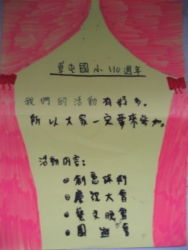 草屯國小110週年
我們的活動有好多。
所以大家一定要來參加。
活動內容:
創意踩街
慶祝大會
藝文晚會
園遊會